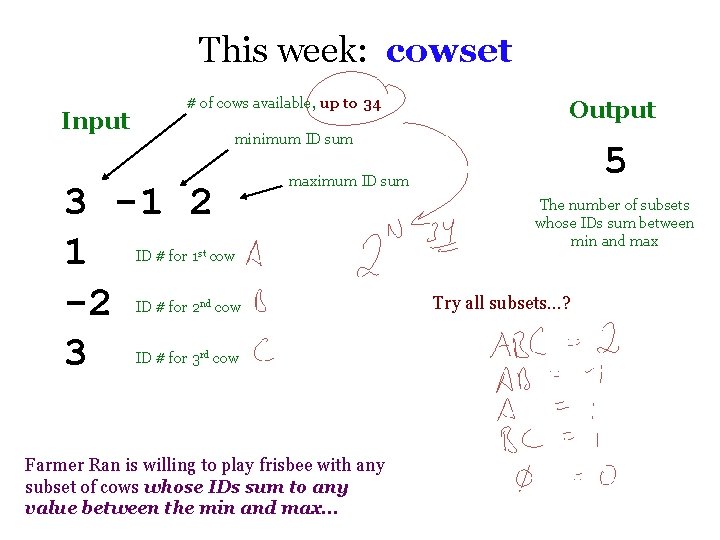 This week: cowset
Input
# of cows available, up to 34
minimum ID sum
maximum ID sum
3 -1 2
1 ID # for 1st cow A
-2 ID # for 2nd cow B
3 ID # for 3rd cow C
2^N 34
Output
5
The number of subsets
whose IDs sum between
min and max
Try all subsets…?
ABC = 2
AB = -1
A = 1
BC = 1
∅ = 0
Farmer Ran is willing to play frisbee with any
subset of cows whose IDs sum to any
value between the min and max…